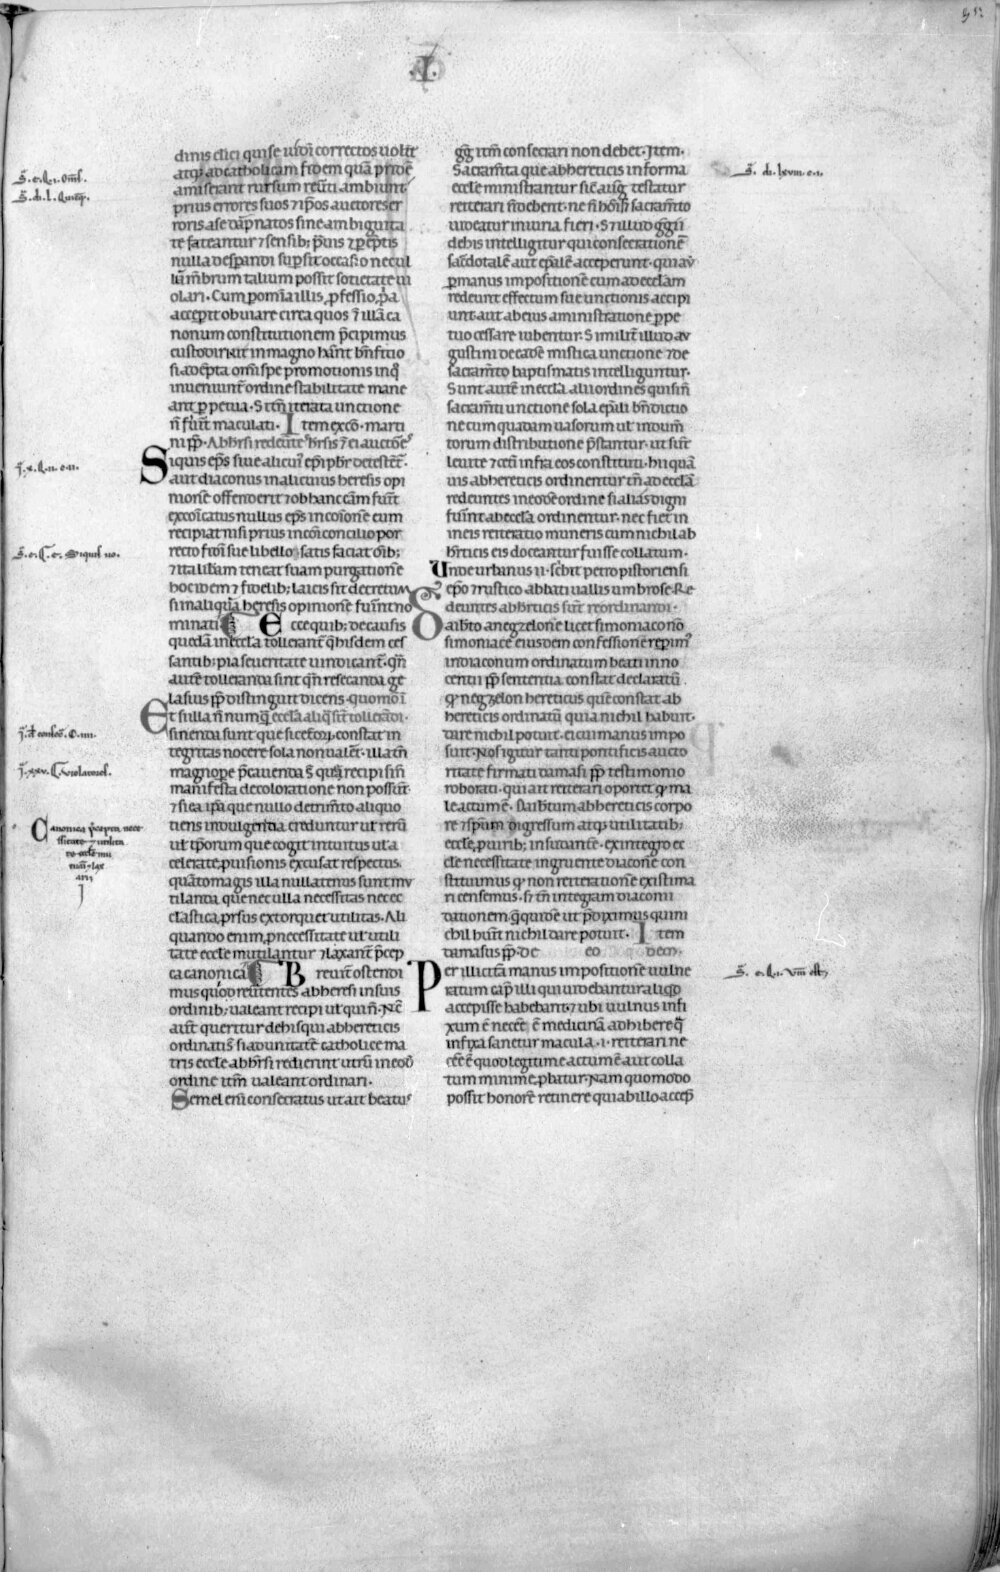 .I.
dinis cl̄ici qui se uid̄i correctos uolūt
atq; ad catholicam fidem quā pridē
amiserant rursum reūti ambiunt
prius errores suos ⁊ ip̄os auctores er
roris a se dāpnatos sine ambiguita
te fateantur ⁊ sensib; p̄uis ⁊ pēptis
nulla desperandi supsit occasio nec ul
lū mēbrum talium possit societate ui
olari. Cum p om̄ia illis pfessio p̄a
acceperit obuiare circa quos ⁊ illā ca
nonum constitutionem p̄cipimus
custodiri ut in magno habn̄t bn̄fitio
si adēpta om̄i spe promotionis in q̄
inueniunt̄ ordine stabilitate mane
ant ppetua. Si tn̄ iterata unctione
n̄ fūnt maculati. Item ex c̄o. marti
ni pp̄. Ab hr̄si redeunte hr̄sis ⁊ ei auctoīes
Siquis ep̄s siue alicui ep̄i pbr̄ de test̄
aut diaconus in alicuius heresis opi
nionē offenderit ⁊ ob hanc cām fūit
excōicatus nullus ep̄s in cōionē eum
recipiat nisi prius in cōi concilio por
recto fid̄i sue libello satis faciat oīb;
⁊ ita libām teneat suam purgationē
hoc idem ⁊ fidelib; laicis sit decretum
si in aliqua heresis opinionē fuīnt no
minati Ecce quib; de causis
quedā in eccl̄a tollerant̄ q̄ bisdem ces
santib; pia seueritate uindicant̄. qn̄
autē tolleranda sint qn̄ resecanda ge
lasius pp̄ distinguit dicens. quomoī
Et si illa n̄ numq̄ eccl̄a aliq̄ sn̄t tollerādi.
sinenda sunt que si cet̄oꝝ constat in
tegritas nocere sola non ualent̄. illa tn̄
magnopē p̄cauenda s̄ que recipi sin̄
manifesta decoloratione non possunt
⁊ si ea ip̄a que nullo detrimēto aliquo
tiens indulgenda creduntur ut rerū
ul tēporum que cogit intuitus ul a
celerate puisionis excusat respectus.
quātomagis illa nullatenus sunt mu
tilanda que nec ulla necessitas nec ec
clāstica prsus extorquet utilitas. Ali
quando enim p necessitate ul utili
tate eccl̄e mutilantur ⁊ laxant p̄cep
ca canonica Breuit̄ ostendi
mus quod reuertentes ab heresi in suis
ordinib; ualeant recipi ul qui n̄. Nc̄
aut̄ queritur de his qui ab hereticis
ordinatis si ad unitatē catholice ma
tris eccl̄e ab hr̄si redierint utrū in eod̄
ordine itm̄ ualeant ordinari.
Semel enī consecratus ut ait beatus
gḡ itm̄ consecrari non debet. Item.
Sacram̄ta que ab hereticis in forma
eccl̄e ministrantur sic̄ aug testatur
reiterari n̄ debent. ne n̄ hōi s̄ sacram̄to
uideatur iniuria fieri. S; illud ḡgii
de his intelligitur qui consecrationē
sac̄dotalē aut ep̄alē acceperunt. qui aū
p manus impositionē cum ad eccl̄am
redeunt effectum sue unctionis accipi
unt aut ab eius aministratione ppe
tuo cessare iubentur. Similit̄ illud au
gustini de eadē mistica unctione ⁊ de
sacram̄to baptismatis intelliguntur.
Sunt autē in eccl̄a alii ordines qui sin̄
sacram̄ti unctione sola ep̄ali bn̄dictio
ne cum quadam uasorum ul indum̄
torum distributione p̄stantur. ut sūt
leuite ⁊ cet̄i infra eos constituti. hii quā
uis ab hereticis ordinentur tn̄ ad eccl̄ā
redeuntes in eodē ordine si alias digni
fuīnt ab eccl̄a ordinentur. nec fiet in
in eis reiteratio muneris cum nichil ab
hr̄ticis eis doceantur fuisse collatum.
Unde urbanus ii. sc̄bit petro pistoriensi
ep̄o ⁊ rustico abbati uallis umbrose. Re
deuntes ab hr̄ticis sūt reordinandi.
Daib̄to a negzelonē licet simoniaco nō
simoniace eiusdem confessionē repim̄
in diaconum ordinatum beati inno
centii pp̄ sententia constat declaratū
ꝙ negzelon hereticus quē constat ab
hereticis ordinatū quia nichil habuit.
dare nichil potuit. ei cui manus impo
suit. Nos igitur tanti pontificis aucto
ritate firmati damasi pp̄ testimonio
roborati. qui ait reiterari oportet ꝙ ma
le actum ē. Daib̄tum ab hereticis corpo
re ⁊ spū digressum atq; utilitatib;
eccl̄e p uirib; insudantē. ex integro ec
cl̄e necessitate ingruente diaconē con
stituimus ꝙ non reiterationē existima
ri censemus. s; tn̄ integram diaconii
dationem. q̄ quidē ut p̄diximus qui ni
chil huit nichil dare potuit. Item
damasus pp̄. de eo dem.
Per illicitā manus impositionē uulne
ratum cap̄ illi qui uidebantur aliq̄d
accepisse habebant. ⁊ ubi uulnus infi
xum ē necē ē medicinā adhibere q̄
infixa sanetur macula. i. reiterari ne
cē ē quod legitime actum ē aut colla
tum minime p̄batur. Nam quomodo
possit honorē retinere qui ab illo accep̄
S̄. e. q. i. om̄s.
S̄. di. l. quicq̄.
q̄. x. q. ii. c. ii.
S̄. e. C. e. Siquis uo.
Canonica p̄cepta nece
ssitate ⁊ utilita
te eccl̄e mu
tent̄ ⁊ lax
ari
S̄. di. lxviii. c. i.
S̄. e. q. i. Vm̄ est